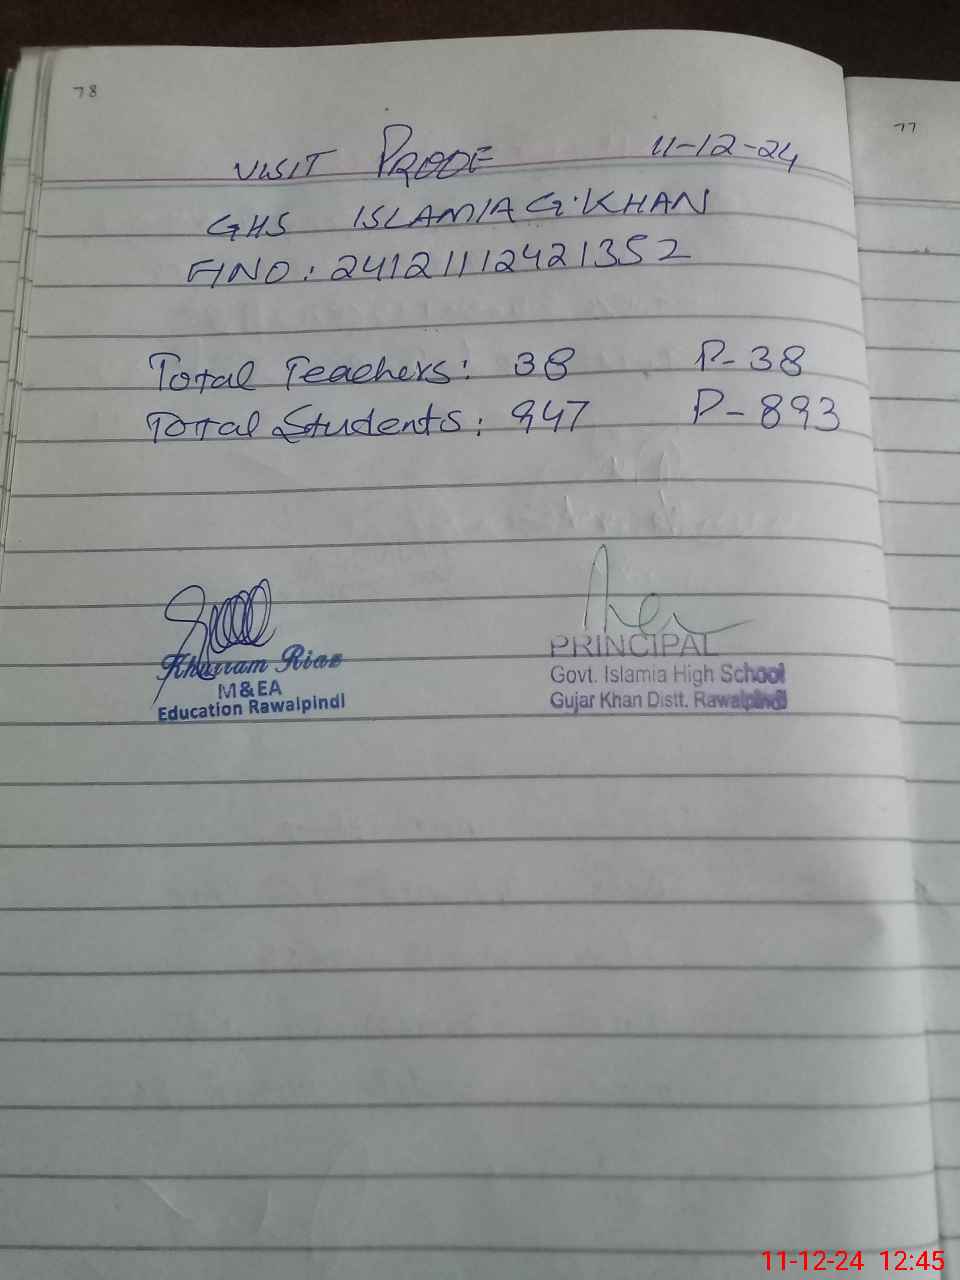 78
77
VISIT PROOF 11-12-24
GHS ISLAMIA G.KHAN
FINO: 24121112421352
Total Teachers: 38 P-38
Total Students: 947 P-893
Khurram Riaz
M&EA
Education Rawalpindi
PRINCIPAL
Govt. Islamia High School
Gujar Khan Distt. Rawalpindi
11-12-24 12:45